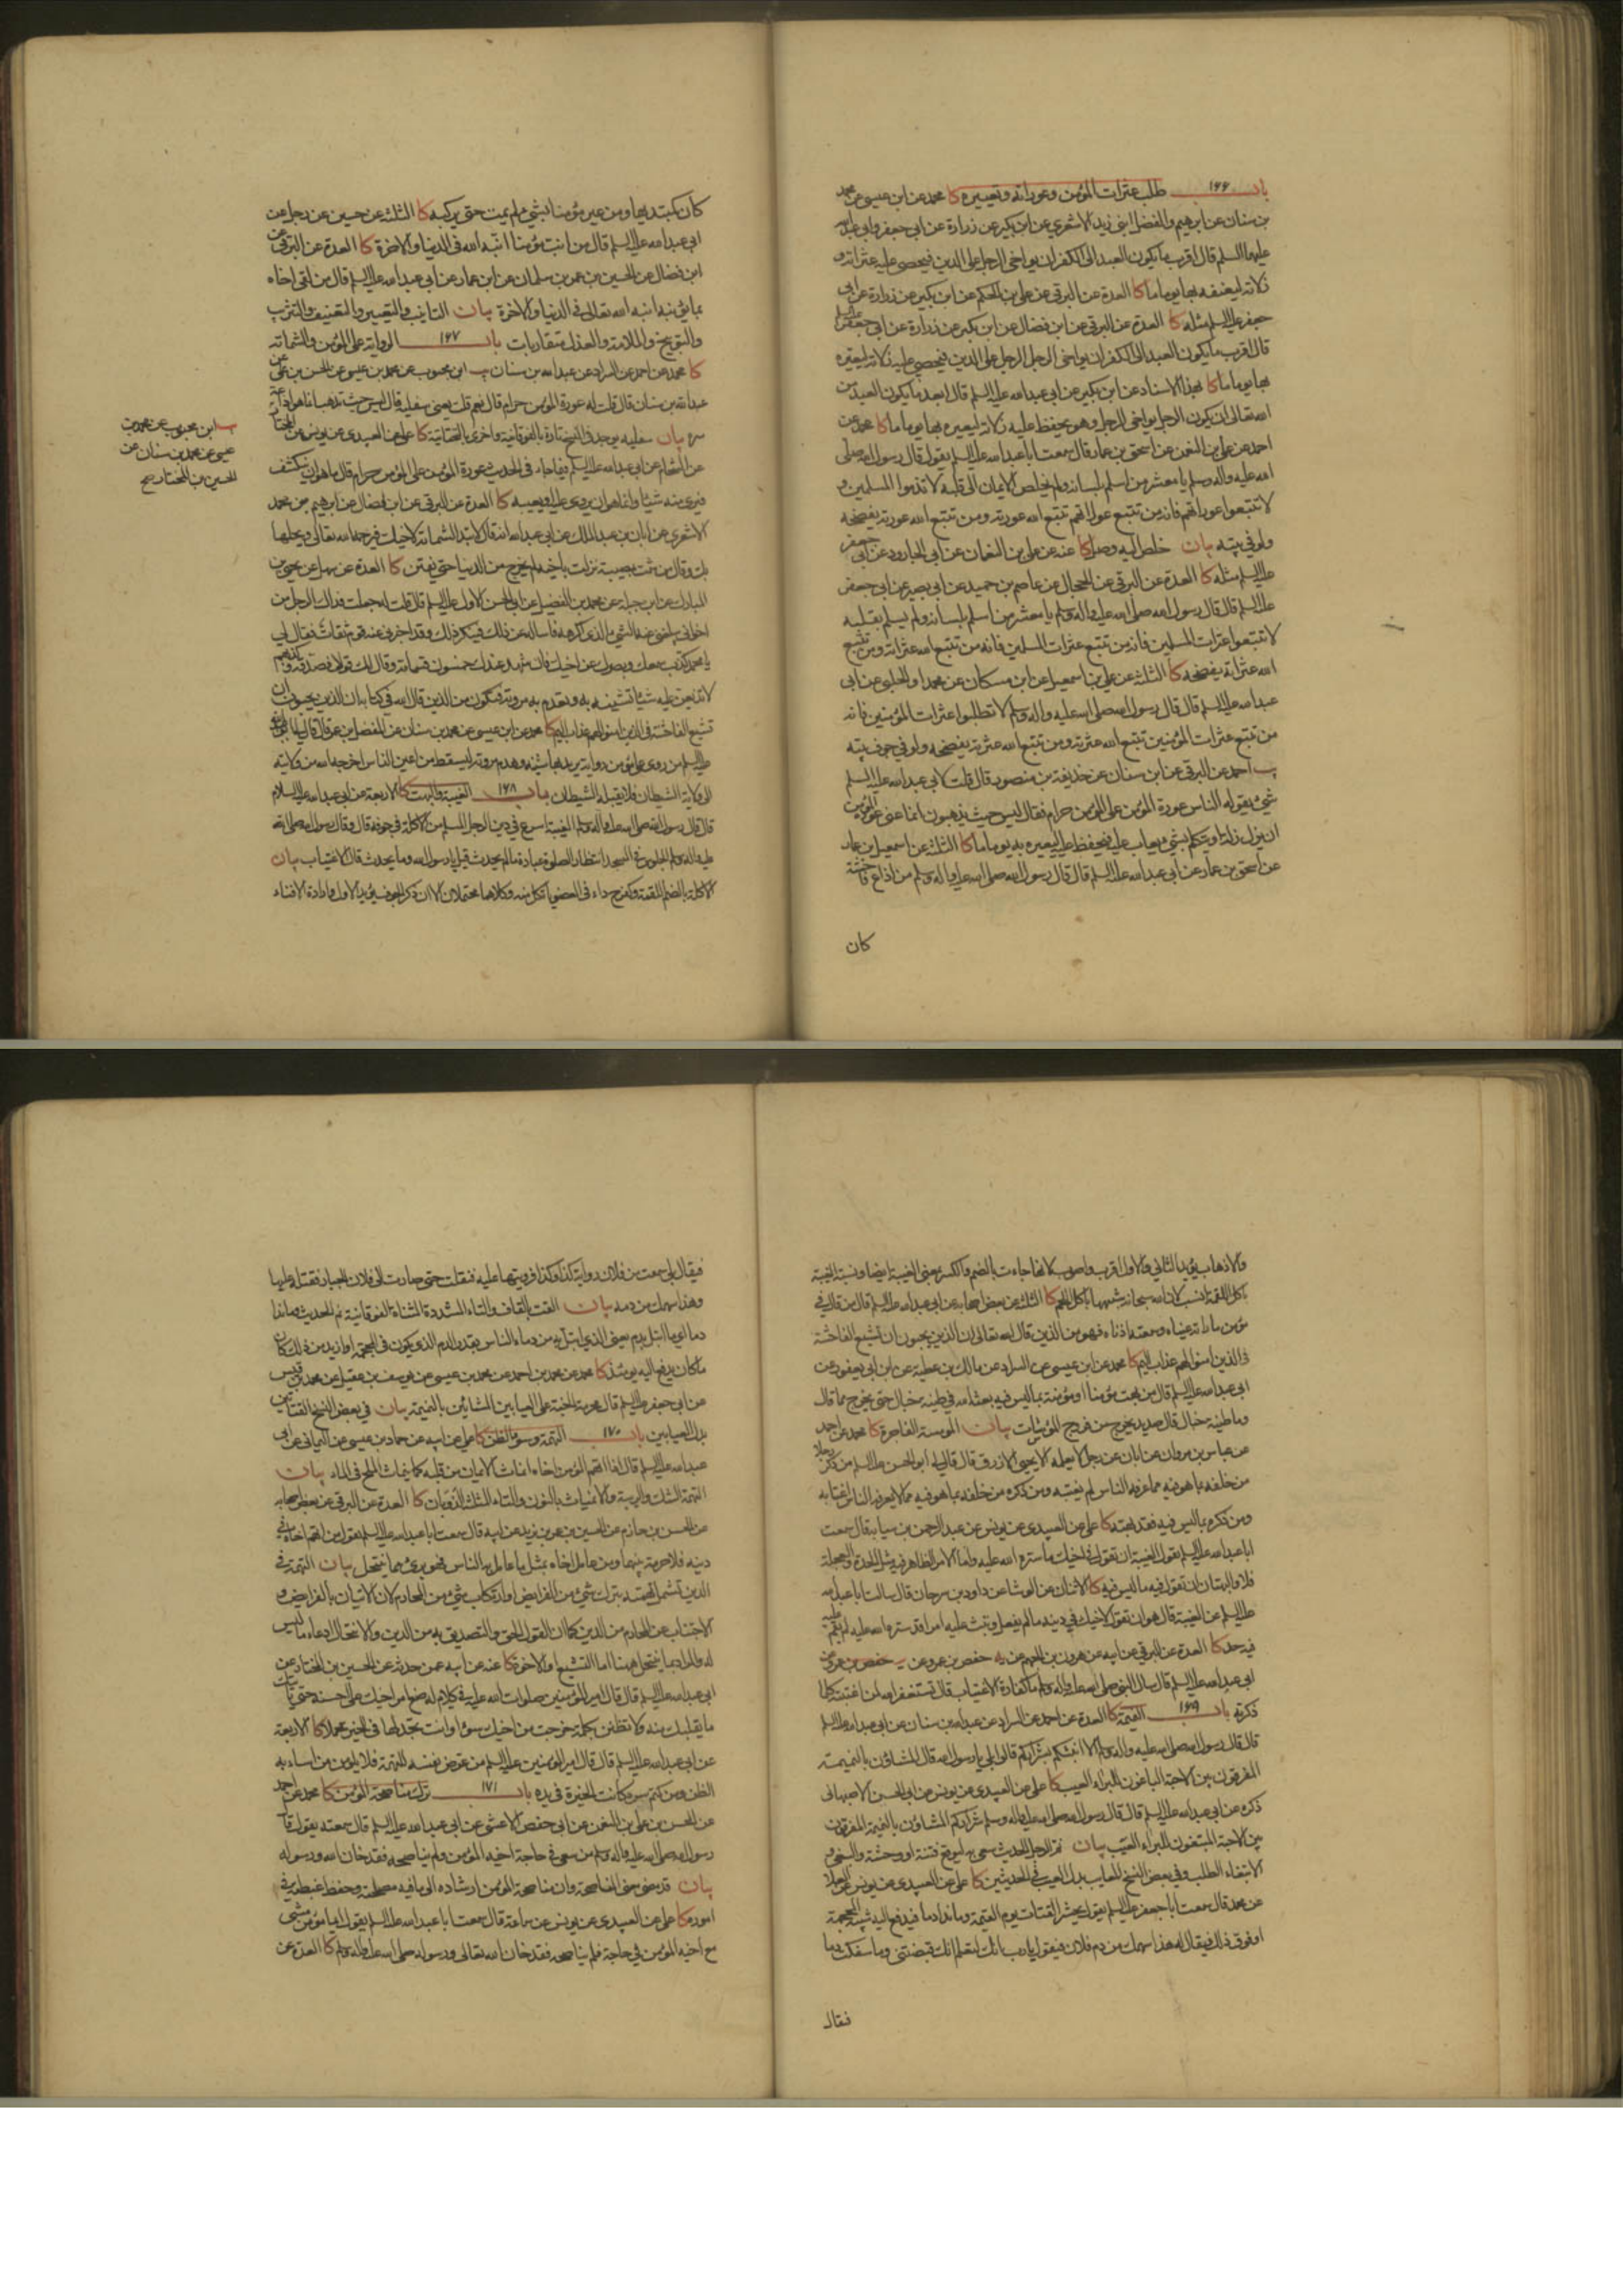 باب ١٦٦ طلب عثرات المؤمن وعوراته وتعييره كا محمد عن ابن عيسى عن محمد
بن سنان عن ابرهيم والفضل ابني زيد الاشعري عن ابن بكير عن زرارة عن ابي جعفر وابي عبد الله
عليهما السلم قال اقرب ما يكون العبد الى الكفر ان يواخي الرجل على الدين فيحصي عليه عثراته و
زلاته ليعنفه بها يوما ما كا العدة عن البرقي عن علي بن الحكم عن ابن بكير عن زرارة عن ابي
جعفر عليه السلم مثله كا العدة عن البرقي عن ابن فضال عن ابن بكير عن زرارة عن ابي جعفر عليه السلم
قال اقرب ما يكون العبد الى الكفر ان يواخي الرجل الرجل على الدين فيحصي عليه زلاته ليعيره
بها يوما ما كا بهذا الاسناد عن ابن بكير عن ابي عبد الله عليه السلم قال ابعد ما يكون العبد من
الله تعالى ان يكون الرجل يواخي الرجل وهو يحفظ عليه زلاته ليعيره بها يوما ما كا محمد عن
احمد عن علي بن النعمن عن اسحق بن عمار قال سمعت ابا عبد الله عليه السلم يقول قال رسول الله صلى
الله عليه واله وسلم يا معشر من اسلم بلسانه ولم يخلص الايمان الى قلبه لا تذموا المسلمين و
لا تتبعوا عوراتهم فانه من تتبع عوراتهم تتبع الله عورته ومن تتبع الله عورته يفضحه
ولو في بيته بيان خلص اليه وصل كا عنه عن علي بن النعمان عن ابي الجارود عن ابي جعفر
عليه السلم مثله كا العدة عن البرقي عن الحجال عن عاصم بن حميد عن ابي بصير عن ابي جعفر
عليه السلم قال قال رسول الله صلى الله عليه واله وسلم يا معشر من اسلم بلسانه ولم يسلم بقلبه
لا تتبعوا عثرات المسلمين فانه من تتبع عثرات المسلمين فانه من تتبع الله عثراته ومن تتبع
الله عثراته يفضحه كا الثلثة عن علي بن اسمعيل عن ابن مسكان عن محمد او الحلبي عن ابي
عبد الله عليه السلم قال قال رسول الله صلى الله عليه واله وسلم لا تطلبوا عثرات المؤمنين فانه
من تتبع عثرات المؤمنين تتبع الله عثرته ومن تتبع الله عثرته يفضحه ولو في جوف بيته
يب احمد عن البرقي عن ابن سنان عن حذيفة بن منصور قال قلت لابي عبد الله عليه السلم
شئ يقوله الناس عورة المؤمن على المؤمن حرام فقال ليس حيث يذهبون انما عنى عورة المؤمن
ان يزل زلة او يتكلم بشئ يعاب عليه فيحفظ عليه ليعيره به يوما ما كا الثلثة عن اسمعيل بن عمار
عن اسحق بن عمار عن ابي عبد الله عليه السلم قال قال رسول الله صلى الله عليه واله وسلم من اذاع فاحشة
كان
كان كمبتديها ومن عير مؤمنا بشئ لم يمت حتى يركبه كا الثلثة عن حسين عن رجل عن
ابي عبد الله عليه السلم قال من انب مؤمنا انبه الله في الدنيا والاخرة كا العدة عن البرقي عن
ابن فضال عن الحسين بن عمر بن سلمان عن ابن عمار عن ابي عبد الله عليه السلم قال من لقي اخاه
بما يؤنبه انبه الله تعالى في الدنيا والاخرة بيان التانيب والتعيير والتعنيف والتثرب
والتوبيخ والملامة والعذل متقاربات باب ١٦٧ الرواية على المؤمن والشماتة
كا محمد عن احمد عن السراد عن عبد الله بن سنان يب ابن محبوب عن محمد بن عيسى عن الحسن بن علي عن
عبد الله بن سنان قال قلت له عورة المؤمن على المؤمن حرام قال نعم قلت يعني سفليه قال ليس حيث تذهب انما هو اذاعة
سره بيان سفليه يوجد في النسخ تارة بالفوقانية واخرى بالتحتانية كا علي عن العبيدي عن يونس عن المختار
عن الشحام عن ابي عبد الله عليه السلم فيما جاء في الحديث عورة المؤمن على المؤمن حرام قال ما هو ان ينكشف
فترى منه شيئا وانما هو ان يروى عليه او يعيبه كا العدة عن البرقي عن ابن فضال عن ابرهيم بن محمد
الاشعري عن ابان بن عبد الملك عن ابي عبد الله انه قال لا تبد الشماتة لاخيك فيرحمه الله تعالى ويحلها
بك وقال من شمت بمصيبة نزلت باخيه لم يخرج من الدنيا حتى يفتتن كا العدة عن سهل عن يحيى بن
المبارك عن ابن جبلة عن محمد بن الفضيل عن ابي الحسن الاول عليه السلم قال قلت له جعلت فداك الرجل من
اخواني يبلغني عنه الشئ الذي اكرهه فاساله عن ذلك فينكر ذلك وقد اخبرني عنه قوم ثقات فقال لي
يا محمد كذب سمعك وبصرك عن اخيك فان شهد عندك خمسون قسامة وقال لك قولا فصدقه وكذبهم
لا تذيعن عليه شيئا تشينه به وتهدم به مروته فتكون من الذين قال الله في كتابه ان الذين يحبون ان
تشيع الفاحشة في الذين امنوا لهم عذاب اليم كا محمد عن ابن عيسى عن محمد بن سنان عن المفضل بن عمر قال قال لي ابو عبد الله
عليه السلم من روى على مؤمن رواية يريد بها شينه وهدم مروته ليسقط من اعين الناس اخرجه الله من ولايته
الى ولاية الشيطان فلا يقبله الشيطان باب ١٦٨ الغيبة والبهت كا الاربعة عن ابي عبد الله عليه السلام
قال قال رسول الله صلى الله عليه واله وسلم الغيبة اسرع في دين الرجل المسلم من الاكلة في جوفه قال وقال رسول الله صلى الله
عليه واله وسلم الجلوس في المسجد انتظار الصلوة عبادة ما لم يحدث قيل يا رسول الله وما يحدث قال الاغتياب بيان
الاكلة بالضم اللقمة وكفرح داء في العضو ياتكل منه وكلاهما محتملان الا ان ذكر الجوف يؤيد الاول وارادة الافناء
يب ابن محبوب عن محمد بن
عيسى عن محمد بن سنان عن
الحسين بن المختار صح
والاذهاب يؤيد الثاني والاول اقرب واصوب لانها جاءت بالضم والكسر بمعنى الغيبة ايضا ونسبة الغيبة
باكل اللقمة انسب لان الله سبحانه شبهها باكل اللحم كا الثلثة عن بعض اصحابه عن ابي عبد الله عليه السلم قال من قال في
مؤمن ما راته عيناه وسمعته اذناه فهو من الذين قال الله تعالى ان الذين يحبون ان تشيع الفاحشة
في الذين امنوا لهم عذاب اليم كا محمد عن ابن عيسى عن السراد عن مالك بن عطية عن ابن ابي يعفور عن
ابي عبد الله عليه السلم قال من بهت مؤمنا او مؤمنة بما ليس فيه بعثه الله في طينة خبال حتى يخرج مما قال
وما طينة خبال قال صديد يخرج من فروج المومسات بيان المومسة الفاجرة كا محمد عن احمد
عن عباس بن مروان عن ابان عن رجل لا يعلمه الا يحيى الازرق قال قال لي ابو الحسن عليه السلم من ذكر رجلا
من خلفه بما هو فيه مما عرفه الناس لم يغتبه ومن ذكره من خلفه بما هو فيه مما لا يعرفه الناس اغتابه
ومن ذكره بما ليس فيه فقد بهته كا علي عن العبيدي عن يونس عن عبد الرحمن بن سيابة قال سمعت
ابا عبد الله عليه السلم يقول الغيبة ان تقول في اخيك ما ستره الله عليه واما الامر الظاهر فيه مثل الحدة والعجلة
فلا والبهتان ان تقول فيه ما ليس فيه كا الاثنان عن الوشا عن داود بن سرحان قال سالت ابا عبد الله
عليه السلم عن الغيبة قال هو ان تقول لاخيك في دينه ما لم يفعل وتبث عليه امرا قد ستره الله عليه لم يقم عليه
فيه حد كا العدة عن البرقي عن ابيه عن هرون بن الجهم عن حفص بن عمر عن
ابي عبد الله عليه السلم قال سال النبي صلى الله عليه واله وسلم ما كفارة الاغتياب قال تستغفر الله لمن اغتبته كلما
ذكرته باب ١٦٩ النميمة كا العدة عن احمد عن السراد عن عبد الله بن سنان عن ابي عبد الله عليه السلم
قال قال رسول الله صلى الله عليه واله وسلم الا انبئكم بشراركم قالوا بلى يا رسول الله قال المشاؤن بالنميمة
المفرقون بين الاحبة الباغون للبراء العيب كا علي عن العبيدي عن يونس عن ابي الحسن الاصبهاني
ذكره عن ابي عبد الله عليه السلم قال قال رسول الله صلى الله عليه واله وسلم شراركم المشاؤن بالنميمة المفرقون
بين الاحبة المبتغون للبراء العيب بيان نم الرجل الحديث سعى به ليوقع فتنة او وحشة والبغي و
الابتغاء الطلب وفي بعض النسخ المعايب بدل العيب في الحديثين كا علي عن العبيدي عن يونس عن العلا
عن محمد قال سمعت ابا جعفر عليه السلم يقول يحشر القتات يوم القيمة وما ندا دما فيدفع اليه شبه المحجمة
او فوق ذلك فيقال له هذا سهمك من دم فلان فيقول يا رب انك لتعلم انك قبضتني وما سفكت دما
فقال
فيقال بلى سمعت من فلان رواية كذا وكذا فرويتها عليه فنقلت حتى صارت الى فلان الجبار فقتله عليها
وهذا سهمك من دمه بيان القت بالقاف والتاء المشددة المثناة الفوقانية نم الحديث وما ندا
دما اي ما ابتل بدم يعني الذي ابتل به من دماء الناس بقدر الدم الذي يكون في المحجمة او ازيد من ذلك كان
ما كان يدفع اليه يومئذ كا محمد عن محمد بن احمد عن محمد بن عيسى عن يوسف بن عقيل عن محمد بن قيس
عن ابي جعفر عليه السلم قال محرمة الجنة على العيابين المشائين بالنميمة بيان في بعض النسخ القتاتين
بدل العيابين باب ١٧٠ التهمة وسوء الظن كا علي عن ابيه عن حماد بن عيسى عن اليماني عن ابي
عبد الله عليه السلم قال اذا اتهم المؤمن اخاه انماث الايمان من قلبه كما ينماث الملح في الماء بيان
التهمة الشك والريبة والانمياث بالنون والثاء المثلثة الذوبان كا العدة عن البرقي عن بعض اصحابه
عن الحسين بن حازم عن الحسين بن عمر بن يزيد عن ابيه قال سمعت ابا عبد الله عليه السلم يقول من اتهم اخاه في
دينه فلا حرمة بينهما ومن عامل اخاه بمثل ما عامل به الناس فهو برئ مما ينتحل بيان التهمة في
الدين تشمل تهمته بترك شئ من الفرايض او ارتكاب شئ من المحارم لان الاتيان بالفرايض و
الاجتناب عن المحارم من الدين كما ان القول الحق والتصديق به من الدين والانتحال ادعاء ما ليس
له والمراد بما ينتحل هيهنا اما التشيع او الاخوة كا عنه عن ابيه عمن حدثه عن الحسين بن المختار عن
ابي عبد الله عليه السلم قال قال امير المؤمنين صلوات الله عليه في كلام له ضع امر اخيك على احسنه حتى ياتيك
ما يقلبك منه ولا تظنن بكلمة خرجت من اخيك سوءا وانت تجد لها في الخير محملا كا الاربعة
عن ابي عبد الله عليه السلم قال قال امير المؤمنين عليه السلم من عرض نفسه للتهمة فلا يلومن من اساء به
الظن ومن كتم سره كانت الخيرة في يده باب ١٧١ ترك مناصحة المؤمن كا محمد عن احمد
عن الحسن بن علي بن النعمن عن ابي حفص الاعشى عن ابي عبد الله عليه السلم قال سمعته يقول قال
رسول الله صلى الله عليه واله وسلم من سعى في حاجة اخيه المؤمن ولم يناصحه فقد خان الله ورسوله
بيان قد مضى معنى المناصحة وان مناصحة المؤمن ارشاده الى ما فيه مصلحته وحفظ غبطته في
اموره كا علي عن العبيدي عن يونس عن سماعة قال سمعت ابا عبد الله عليه السلم يقول ايما مؤمن مشى
مع اخيه المؤمن في حاجة فلم يناصحه فقد خان الله تعالى ورسوله صلى الله عليه واله وسلم كا العدة عن